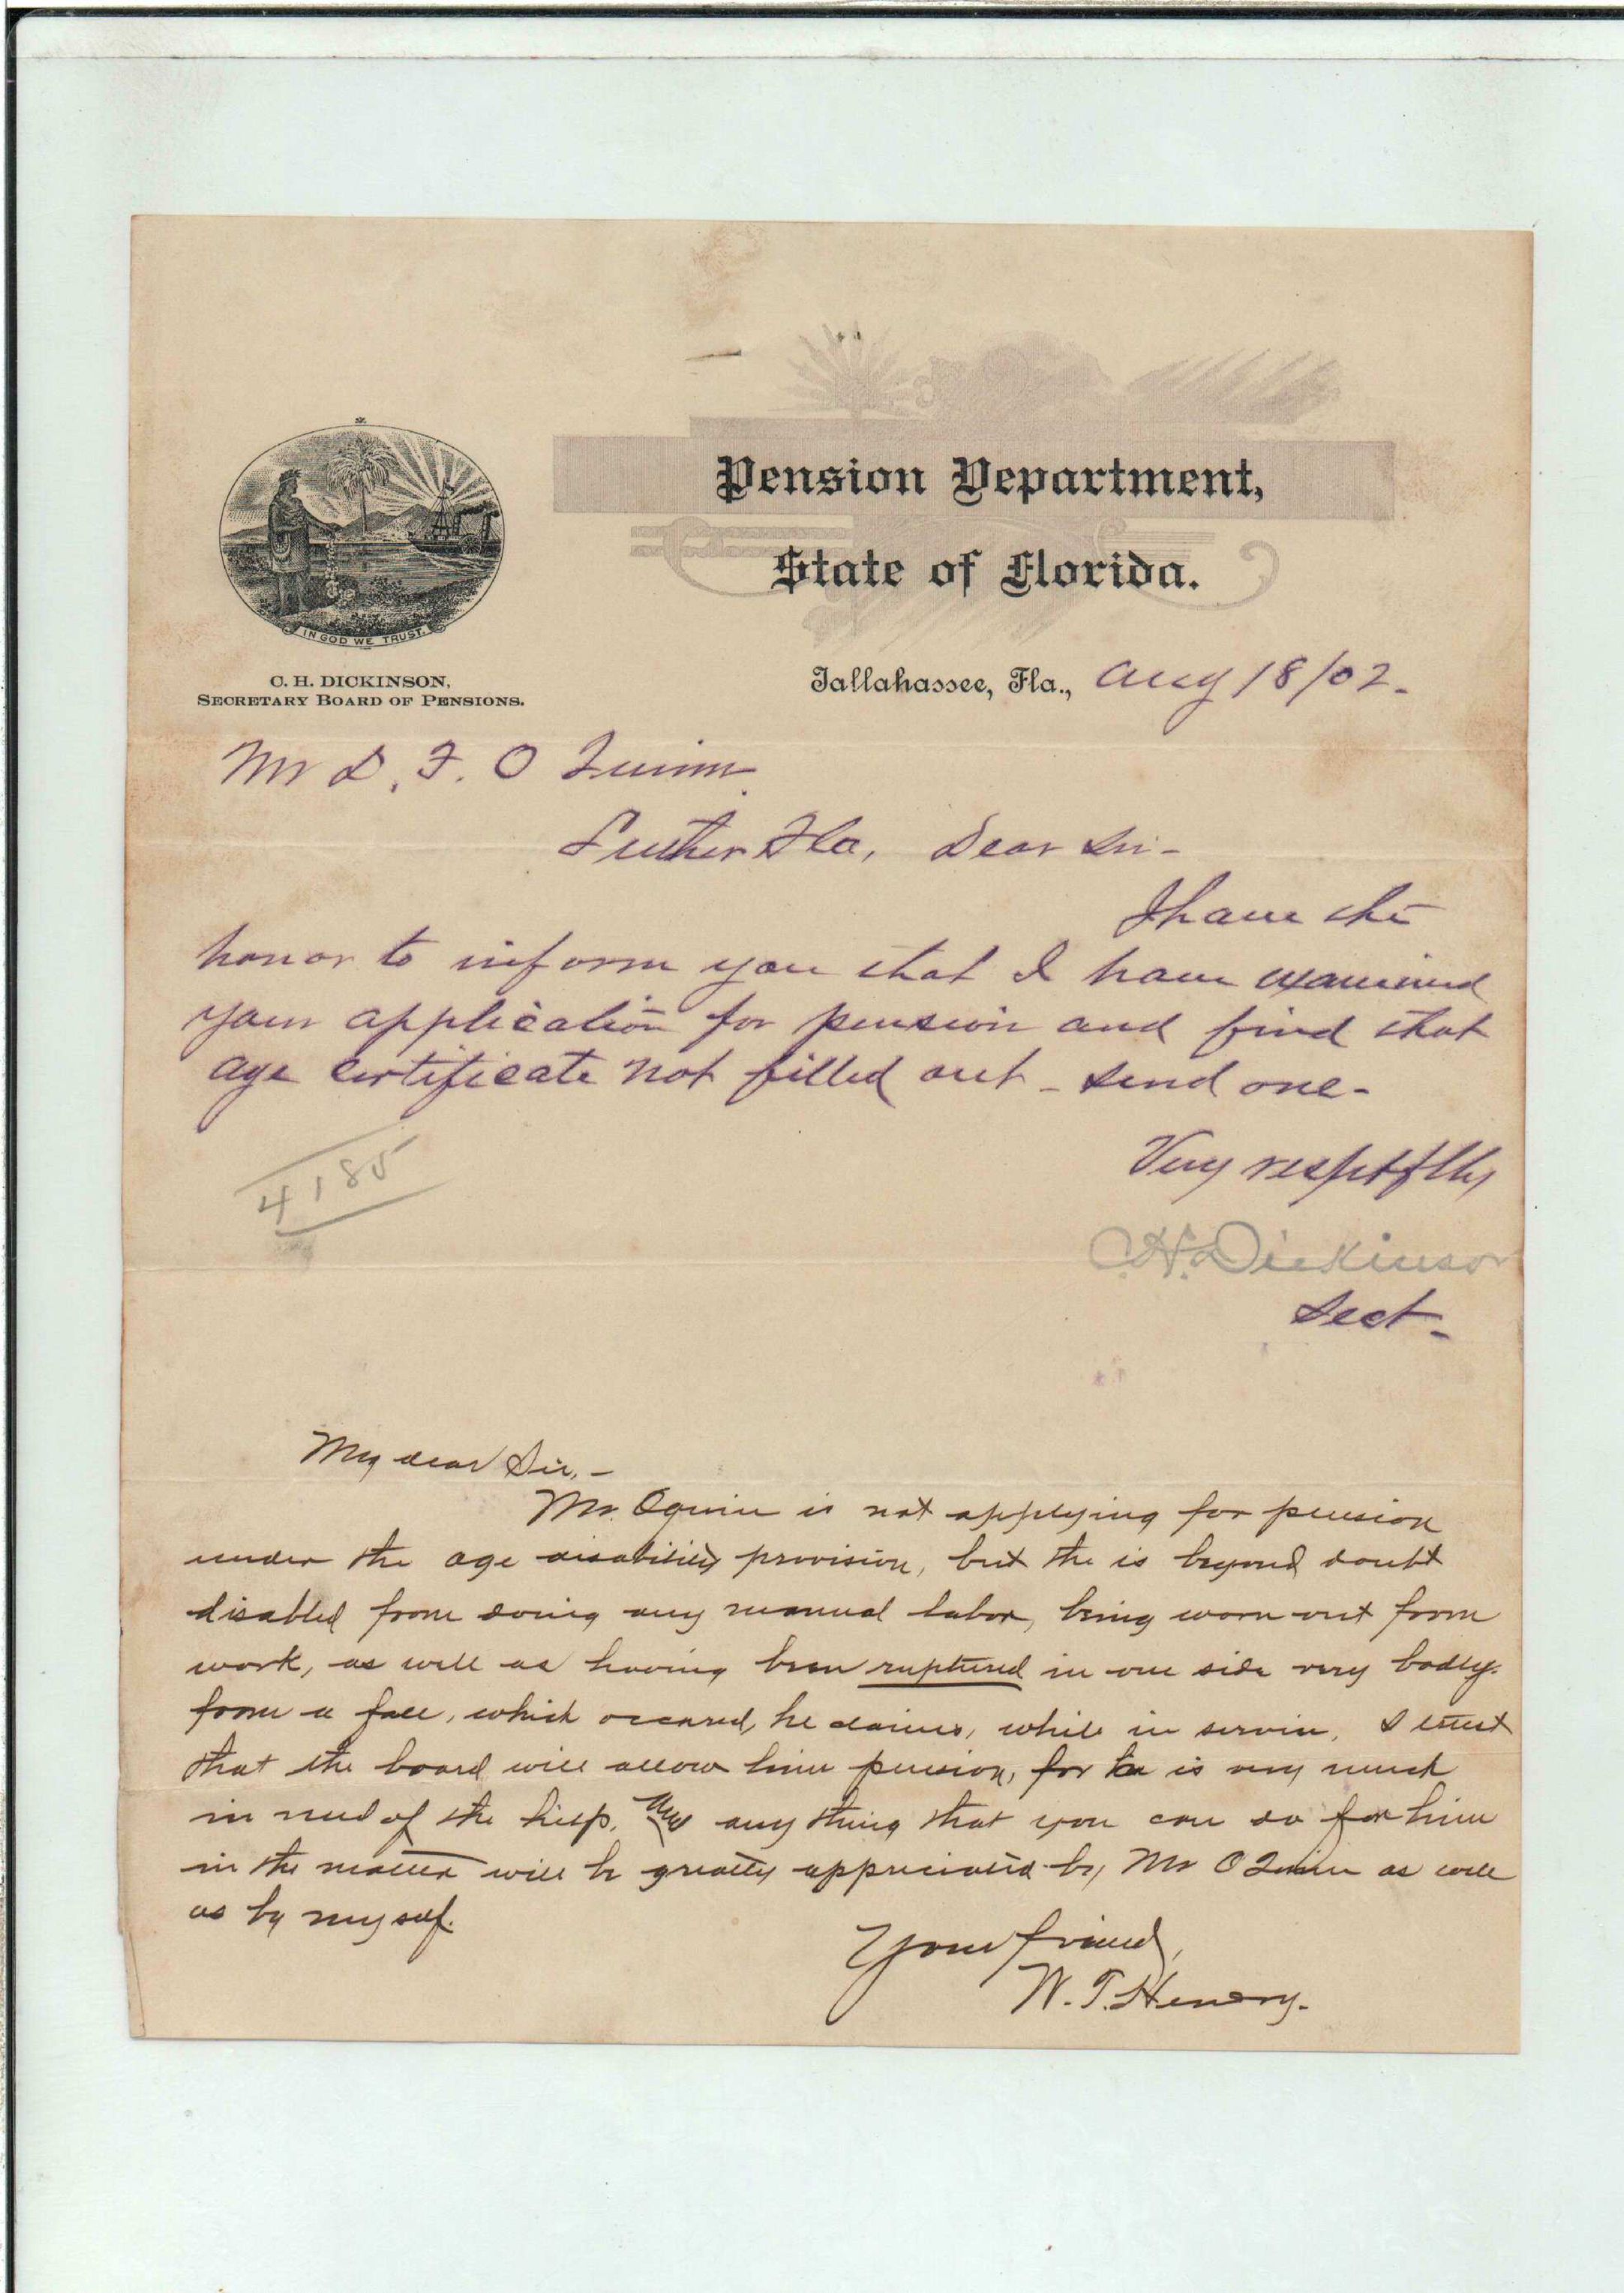 Pension Department,
State of Florida.
IN GOD WE TRUST.
C. H. DICKINSON,
SECRETARY BOARD OF PENSIONS.
Tallahassee, Fla., Aug 18/02.
Mr D. F. O Quinn
Luther Fla, Dear Sir-
I have the
honor to inform you that I have examined
your application for pension and find that
age certificate not filled out - send one-
Very resptflly
4185
C.H. Dickinson
Sect-
My dear Sir,-
Mr. Oquin is not applying for pension
under the age disability provision, but the is beyond doubt
disabled from doing any manual labor, being worn out from
work, as well as having been ruptured in one side very badly.
from a fall, which occured, he claims, while in service. I trust
that the board will allow him pension, for he is very much
in need of the help. any thing that you can do for him
in the matter will be greatly appreciated by Mr O Quinn as well
as by my self.
Your friend,
W. T. Hendry.